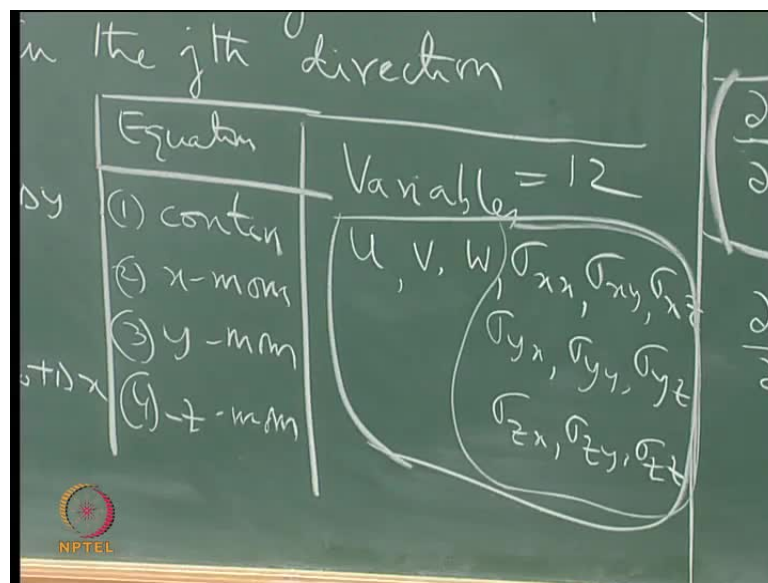 in the jth direction
Equation
Variables = 12
Δy
(1) contin
U, V, W, σxx, σxy, σxz
(2) x-mom
σyx, σyy, σyz
(3) y-mom
σzx, σzy, σzz
(4) z-mom
NPTEL